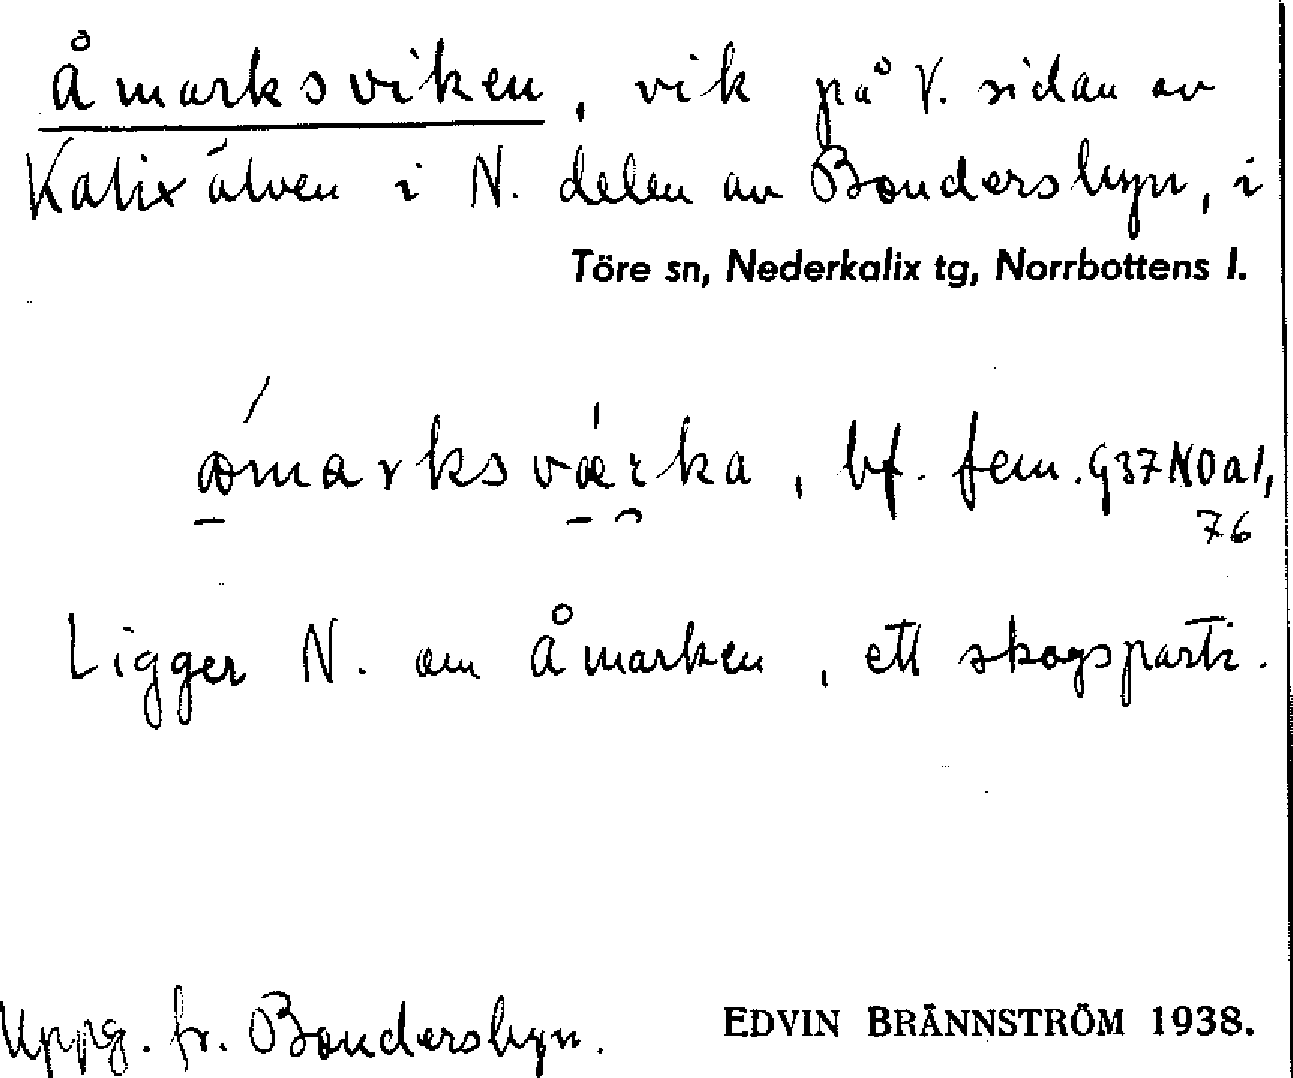 Åmarksviken, vik på V. sidan av
Kalixälven i N. delen av Bondersbyn, i
Töre sn, Nederkalix tg, Norrbottens l.
bf. fem. G37NOa1,
76
Ligger N. om Åmarken, ett skogsparti.
Uppg. fr. Bondersbyn.
EDVIN BRÄNNSTRÖM 1938.